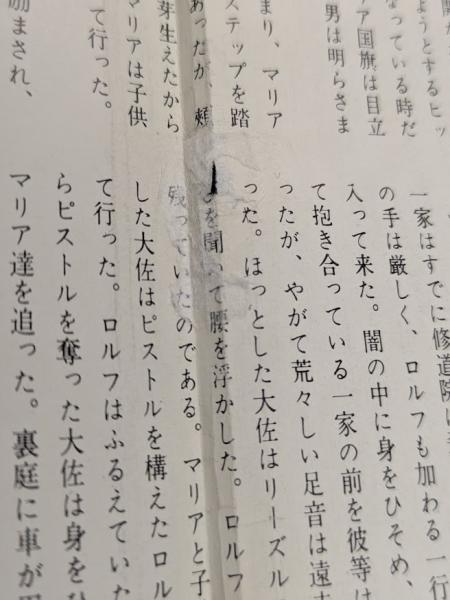 ようとするヒッ
なっている時だ
ア国旗は目立
男は明らさま
まり、マリア
ステップを踏
あったが、頬
芽生えたから
マリアは子供
て行った。
励まされ、
一家はすでに修道院に
の手は厳しく、ロルフも加わる一行
入って来た。闇の中に身をひそめ、
て抱き合っている一家の前を彼等は
ったが、やがて荒々しい足音は遠
った。ほっとした大佐はリーズル
を聞いて腰を浮かした。ロルフ
残っていたのである。マリアと子
した大佐はピストルを構えたロル
て行った。ロルフはふるえていた
らピストルを奪った大佐は身をひ
マリア達を追った。裏庭に車が